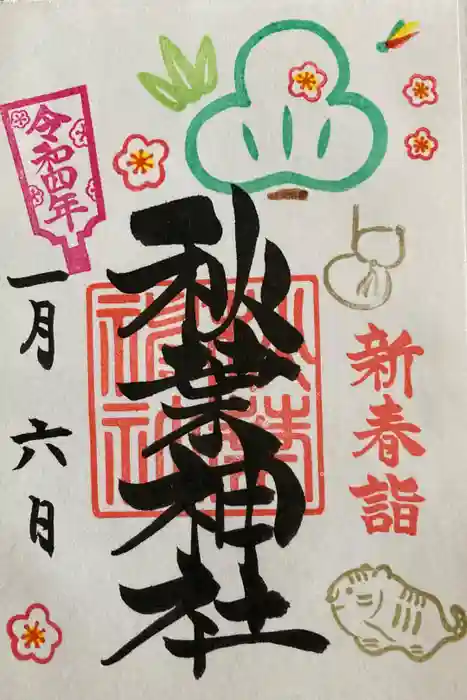 新春詣
秋葉神社
令和四年
一月六日